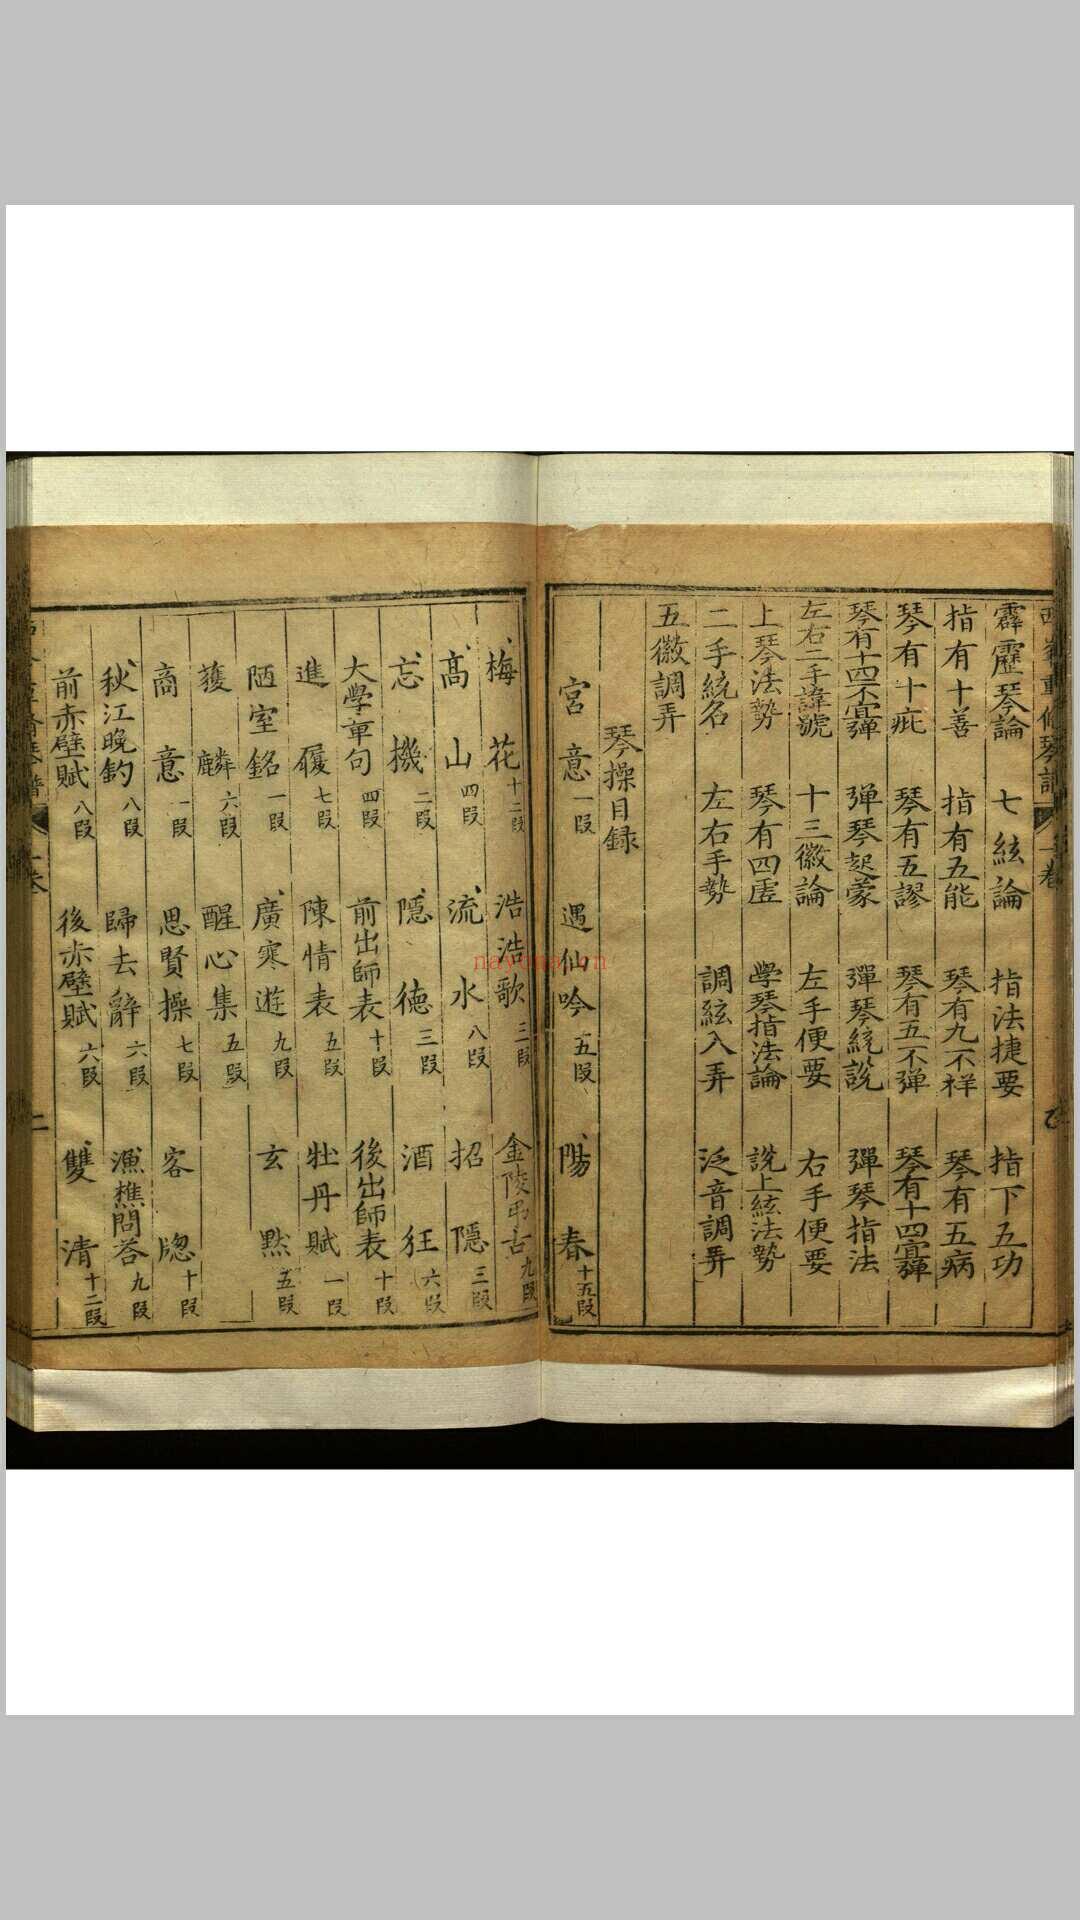 霹靂琴論 七絃論 指法捷要 指下五功
指有十善 指有五能 琴有九不祥 琴有五病
琴有十疵 琴有五謬 琴有五不弹 琴有十四宜彈
琴有十四不宜彈 弹琴起蒙 彈琴統説 彈琴指法
左右二手諱號 十三徽論 左手便要 右手便要
上琴法勢 琴有四虗 學琴指法論 説上絃法勢
二手統名 左右手勢 調絃入弄 泛音調弄
五徽調弄
琴操目録
宮意一段 遇仙吟五段 陽春十五段
梅花十二段 浩浩歌三段 金陵弔古九段
髙山四段 流水八段 招隱三段
忘機二段 隱德三段 酒狂六段
大學章句四段 前出師表十段 後出師表十段
進履七段 陳情表五段 牡丹賦一段
陋室銘一段 廣寒遊九段 玄黙五段
獲麟六段 醒心集五段
商意一段 思賢操七段 客牕十段
秋江晚釣八段 歸去辭六段 漁樵問荅九段
前赤壁賦八段 後赤壁賦六段 雙清十二段
一卷
二
nayona.cn